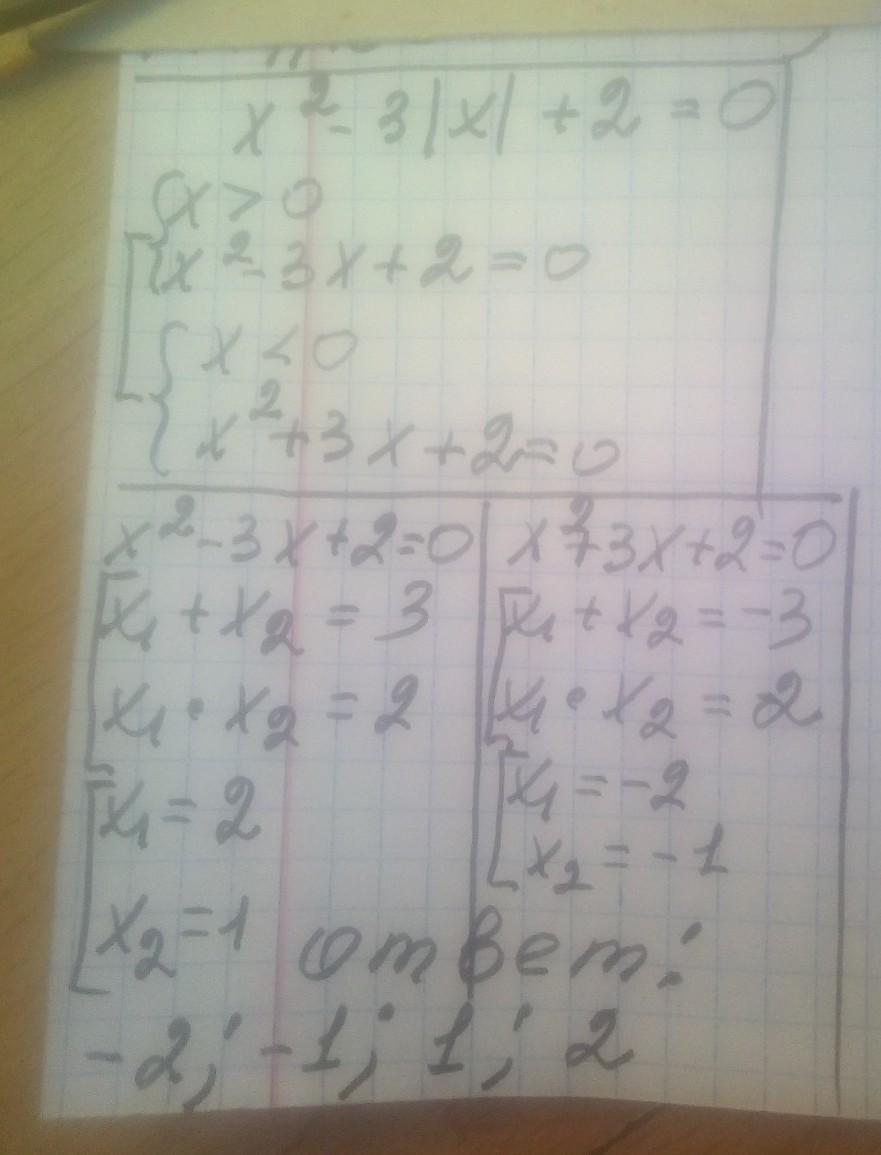 x² - 3|x| + 2 = 0
x > 0
x² - 3x + 2 = 0
x < 0
x² + 3x + 2 = 0
x² - 3x + 2 = 0
x₁ + x₂ = 3
x₁ · x₂ = 2
x₁ = 2
x₂ = 1
x² + 3x + 2 = 0
x₁ + x₂ = -3
x₁ · x₂ = 2
x₁ = -2
x₂ = -1
ответ:
-2; -1; 1; 2